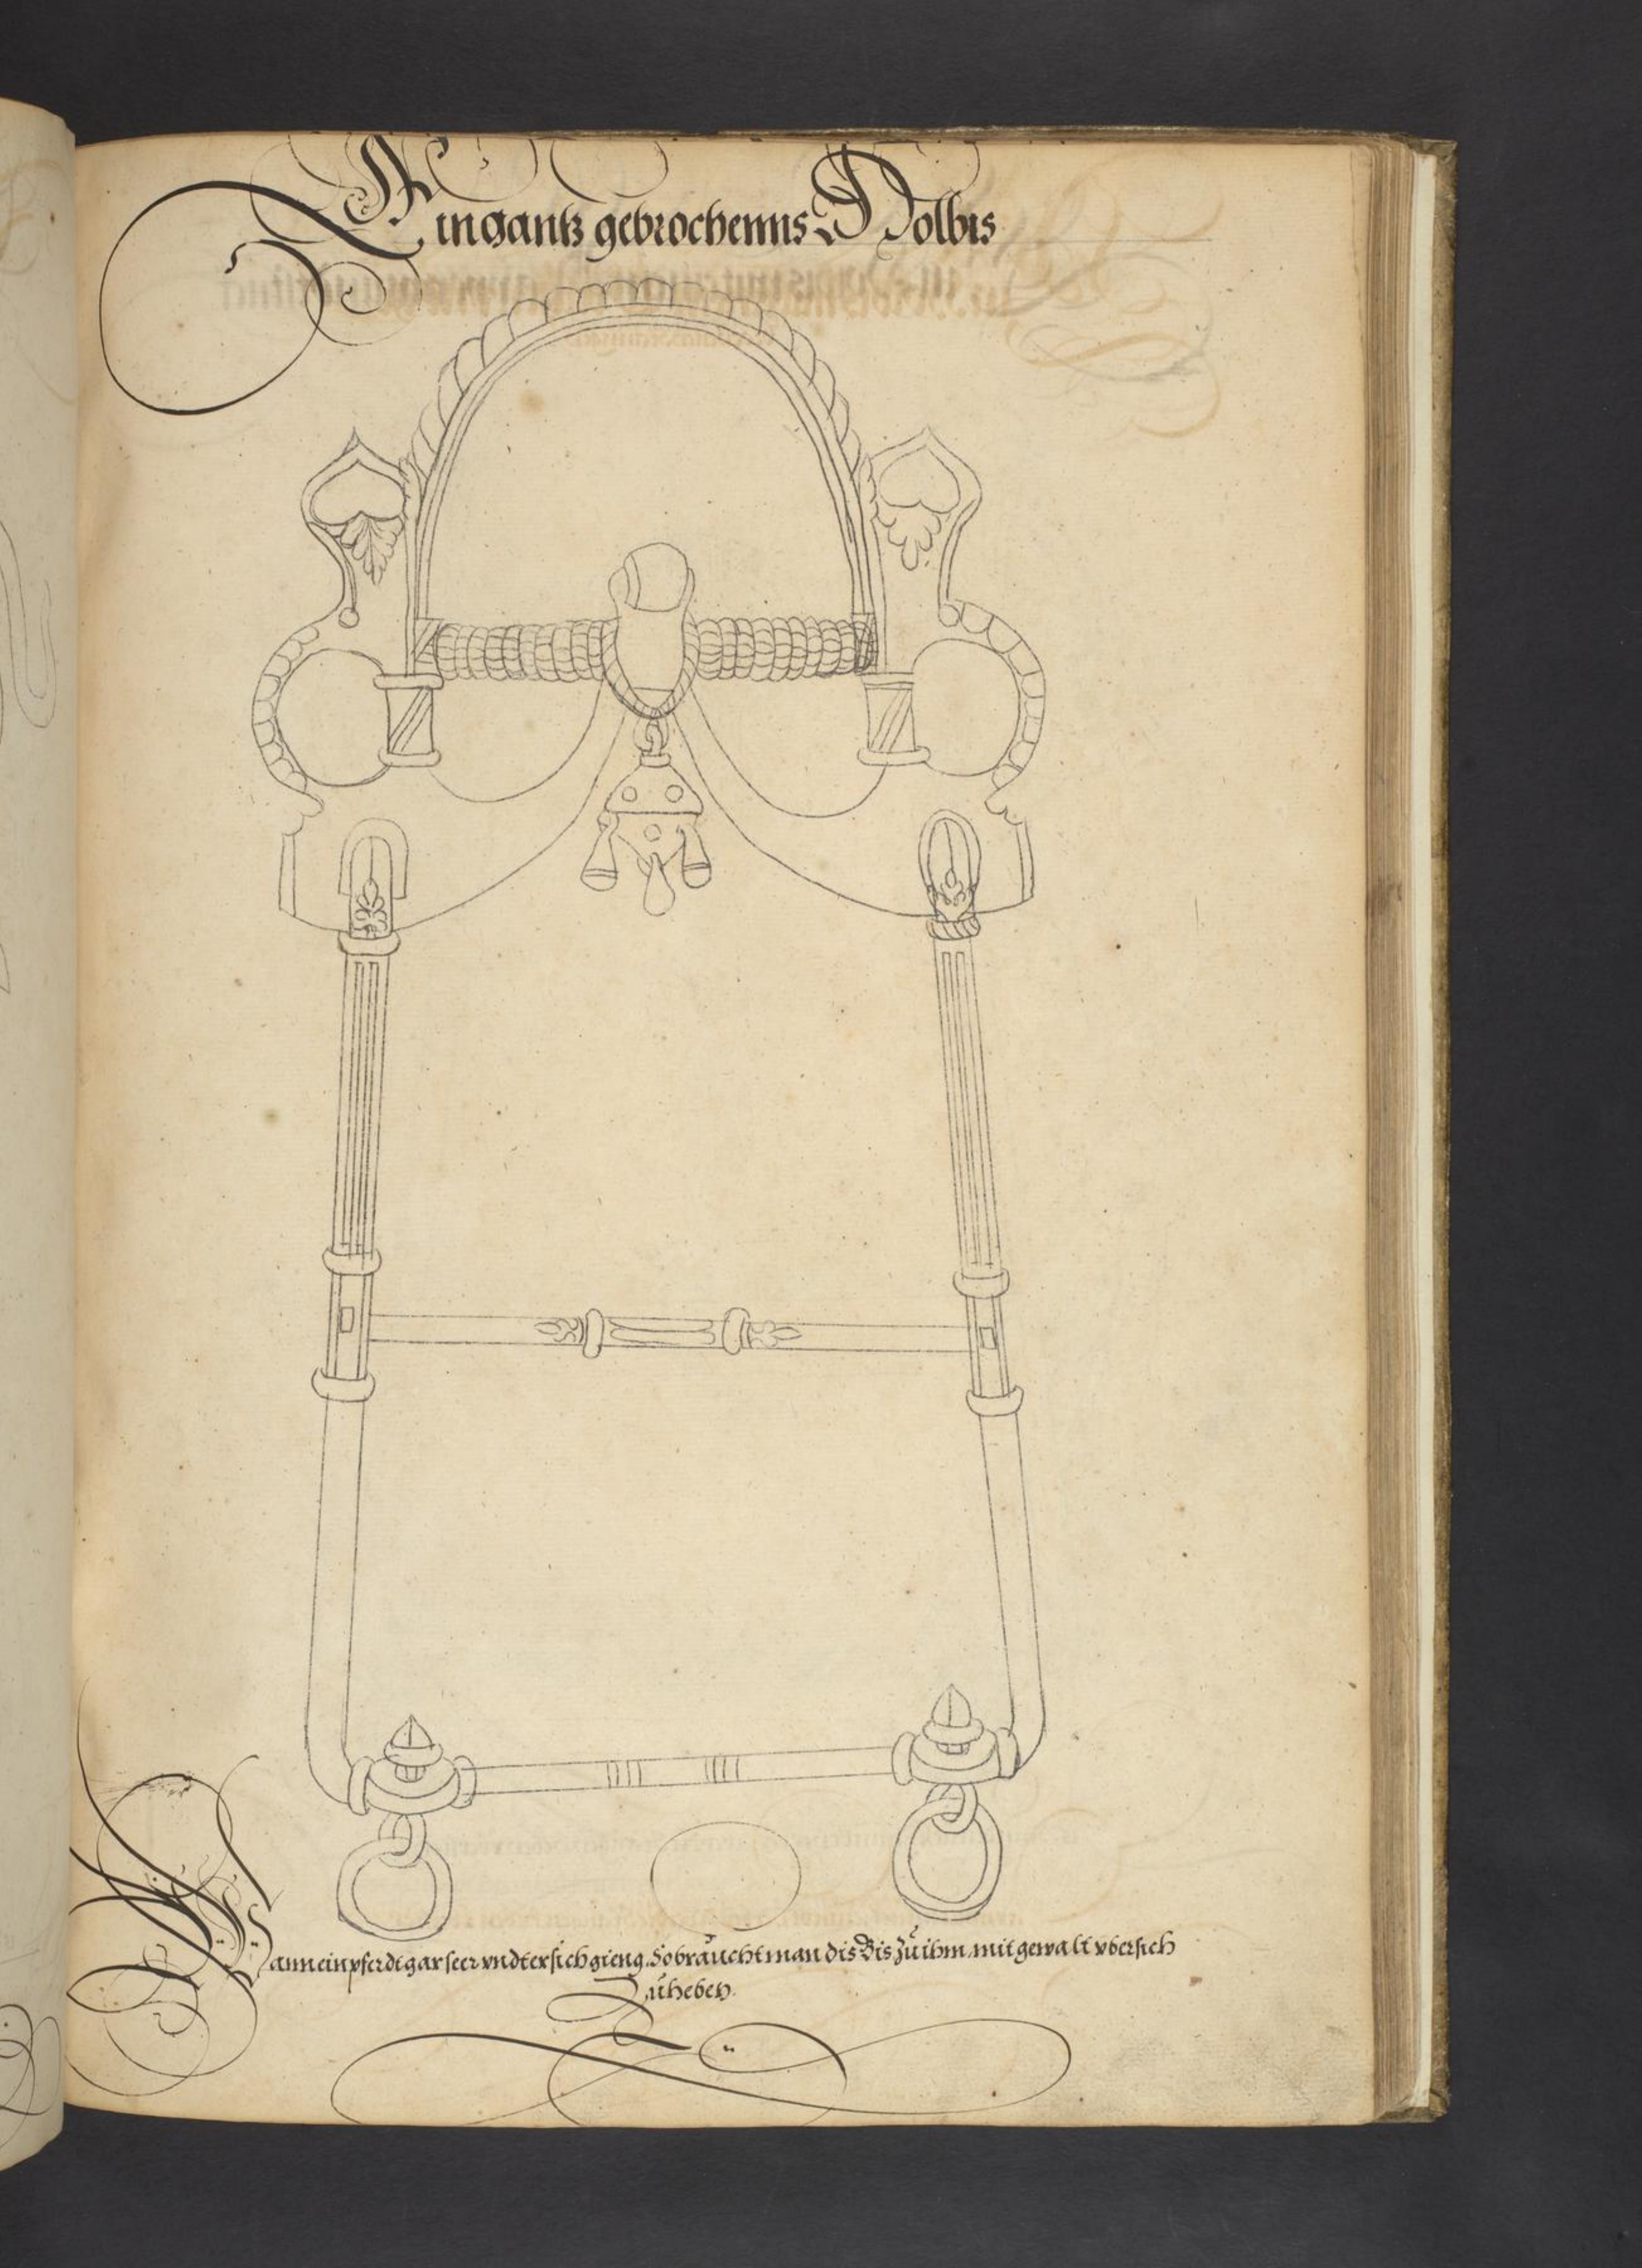 Ein gantz gebrochenns Holbis
Wann ein pferdt gar seer vndter sich gieng. So braucht man dis Bis zu ihm mit gewalt vber sich
Zuheben.